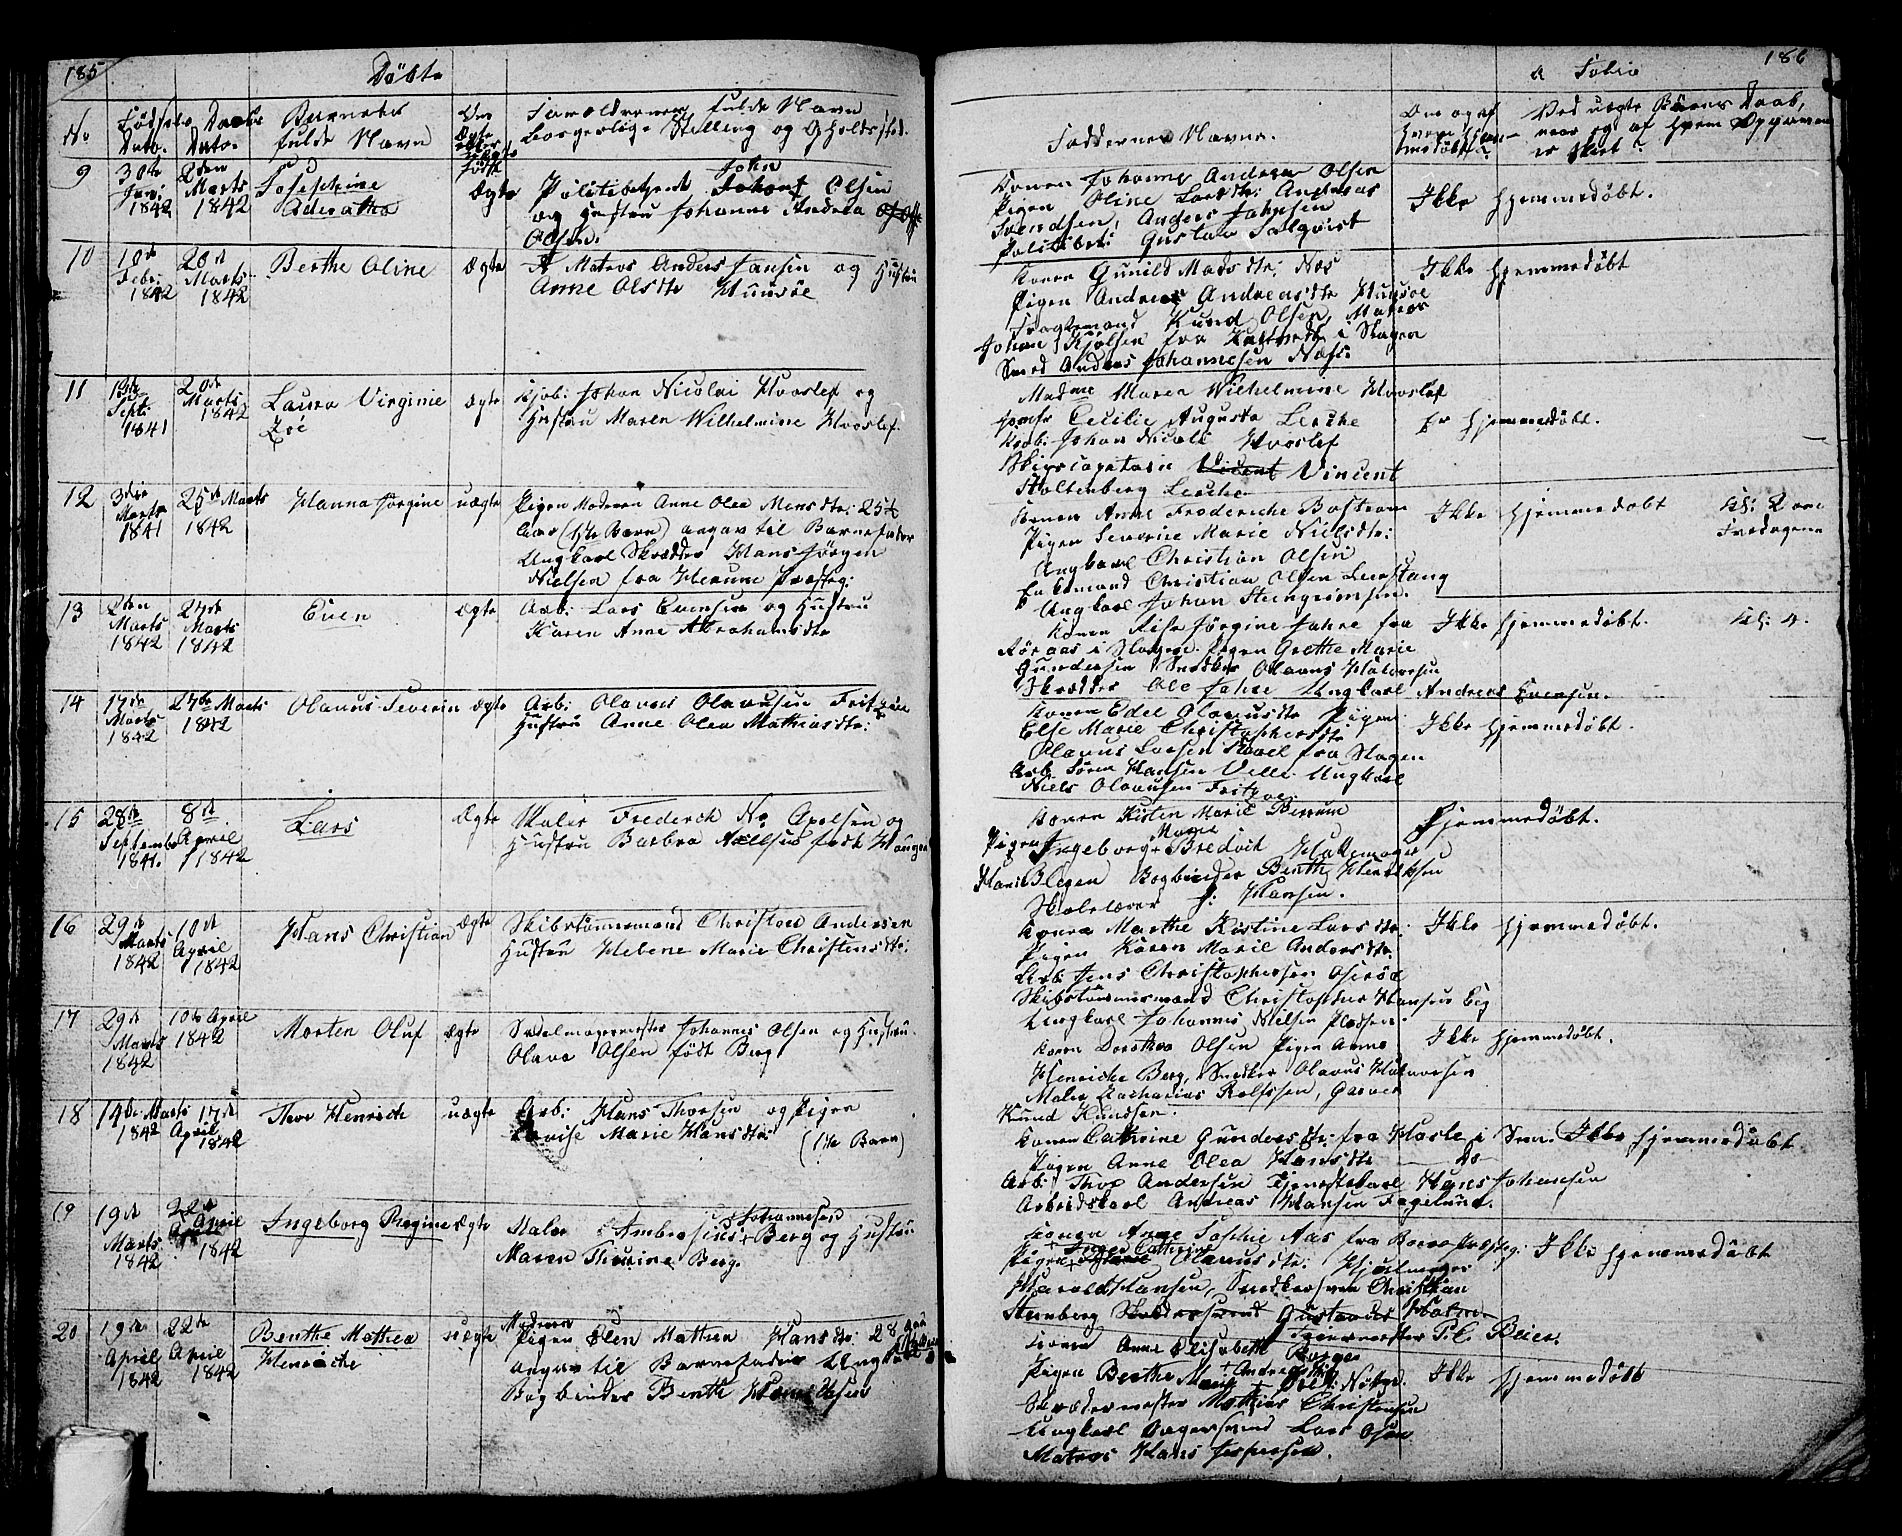 185
Døbte
No
Fødsels Daabs Barnets
Dato. Dato. fulde Navn
Om ægte eller uægte født
Forældrenes fulde Navn
borgerlige Stilling og Opholdssted.
9 30te Janj 1842 2den Marts 1842 Josephine ægte
Politibetjent John Olsen
og Hustru Johanne Andrea
Olsen.
10 10de Febr: 1842 20de Marts 1842 Berthe Oline ægte
Matros Anders Jansen og Hustru
Anne Olsdtr Huusøe
11 13de Sept: 1841 20de Marts 1842 Laura Virginie Zoe ægte
Kjøb: Johan Nicolai Hvoslef og
Hustru Maren Wilhelmine Hvoslef.
12 3die Marts 1841 25de Marts 1842 Hanna Jørgine uægte
Pigen Moderen Anne Olea Mensdtr: 25½
Aar (1ste Barn) angav til Barnefader
Ungkarl Skrædder Hans Jørgen
Nielsen fra Præsteg:
13 2den Marts 1842 27de Marts 1842 Even ægte
Arb: Lars Evensen og Hustru
Karen Anne Abrahamsdtr
14 17de Marts 1842 27de Marts 1842 Olavus Severin ægte
Arb: Olavus Olavusen Fritzøe
Hustru Anne Olea Mathiasdtr:
15 28de September 1841. 8de April 1842 Lars ægte
Maler Frederch No Apelsen og
Hustru Barbra født Haugen
16 29de Marts 1842 10de April 1842 Hans Christian ægte
Skibstømmermand Christen Andersen
Hustru Helene Marie Christensdtr:
17 29de Marts 1842 10de April 1842 Morten Oluf ægte
Sadelmagermester Johannes Olsen og Hustru
Olava Olsen født Berg
18 14de Marts 1842 17de April 1842 Thor Henrich uægte
Arb: Hans Thorsen og Pigen
Lovise Marie Hansdtr:
(1ste Barn)
19 19de Marts 1842 22de April 1842 Ingeborg Regine ægte
Johannesen
Maler Ambrosius + Berg og Hustru
Maren Thorine Berg.
20 19de April 1842 22de April 1842 Benthe Mathea Henriche uægte
Moderen
Pigen Elen Mathea Hansdtr: 28
angav til Barnefader Ungkarl
Bogbinder Benth Henrichsen
186
a Folio
Faddernes Navne.
Om og af hvem hjemmedøbt?
Ved uægte Børns Daab,
naar og af hvem Opgaven
er skeet?
Konen Johanne Andrea Olsen
Pigen Oline Larsdtr: Andreas
Svendsen, Anders Johnsen
Politibetj: Gustav Salqvist
Ikke hjemmedøbt.
Konen Gunild Madsdtr: Næs
Pigen Andrea Andreasdtr Huusøe
Fragtemand Knud Olsen, Matros
Johan Kjølsen fra i Slagen
Smed Anders Johannesen Næss.
Ikke hjemmedøbt
Madme Maren Wilhelmine Hvoslef
Jomfr Cecilie Augusta Lerche
Kjøb: Johan Nicolai Hvoslef
Skipscapetain Vincent Vincent
Stoltenberg Lerche
Er hjemmedøbt.
Konen Anne Frederiche Bostrøm
Pigen Severine Marie Nielsdtr:
Ungkarl Christian Olsen
Christian Olsen Løvestang
Ungkarl Johan Steengrimsen.
Ikke hjemmedøbt
Konen Else Jørgine Jahre fra
Røraas i Slagen. Pigen Grethe Marie
Gundersen Snedker Olavus Halvorsen
Skrædder Ole Jahre Ungkarl Andreas Evensen.
Ikke hjemmedøbt. Kl: 4.
Konen Edel Olavusdtr Pigen
Else Marie Christophersdtr
Olavus Larsen fra Slagen
Arb Søren Hansen Velle. Ungkarl
Niels Olavusen Fritzøe.
Ikke hjemmedøbt.
Konen Kisten Marie Berrum
Marie
Pigen Ingeborg + Bredvik Hattemager
Bogbinder Benth Henrichsen
Skolelærer J: Hansen.
Hjemmedøbt.
Konen Marthe Kistine Larsdtr
Pigen Karen Marie Andersdtr.
Arb Jens Christophersen
Skibstømmermand Christopher Hansen Eeg
Ungkarl Johannes Nielsen
Ikke hjemmedøbt.
Konen Dorothea Olsen Pigen Anne
Henriche Berg, Snedker Olavus Halvorsen
Maler Zacharias Rolfssen, Garver
Knud Knudsen.
Ikke hjemmedøbt.
Konen Cathrine Gundersdtr: fra i Sem.
Pigen Anne Olea Hansdtr do
Arb: Thor Andersen Tjenestekarl Hans Johansen
Arbeidskarl Andreas Hansen Fagelund.
Ikke hjemmedøbt
Konen Anne Sophie Aas fra Borre Præsteg:
Inger Cathrine
Pigen + Olausdtr: Hjulmager
Harald Hansen, Snedkersvend Christian
Steenberg
P. C. Beier.
Ikke hjemmedøbt
Konen Anne Elisabeth Borger
Pigen Berthe
Skrædermester Mathias Christensen
Ungkarl Bagersvend Lars Olsen
Matros Hans Jespersen.
Ikke hjemmedøbt